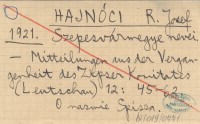 HAJNÓCI R. József
1921. Szepesvármegye nevei.
— Mitteilungen aus der Vergan-
genheit des Zipser Komitates
(Leutschau) 12: 45-62.
O nazwie Spisza.